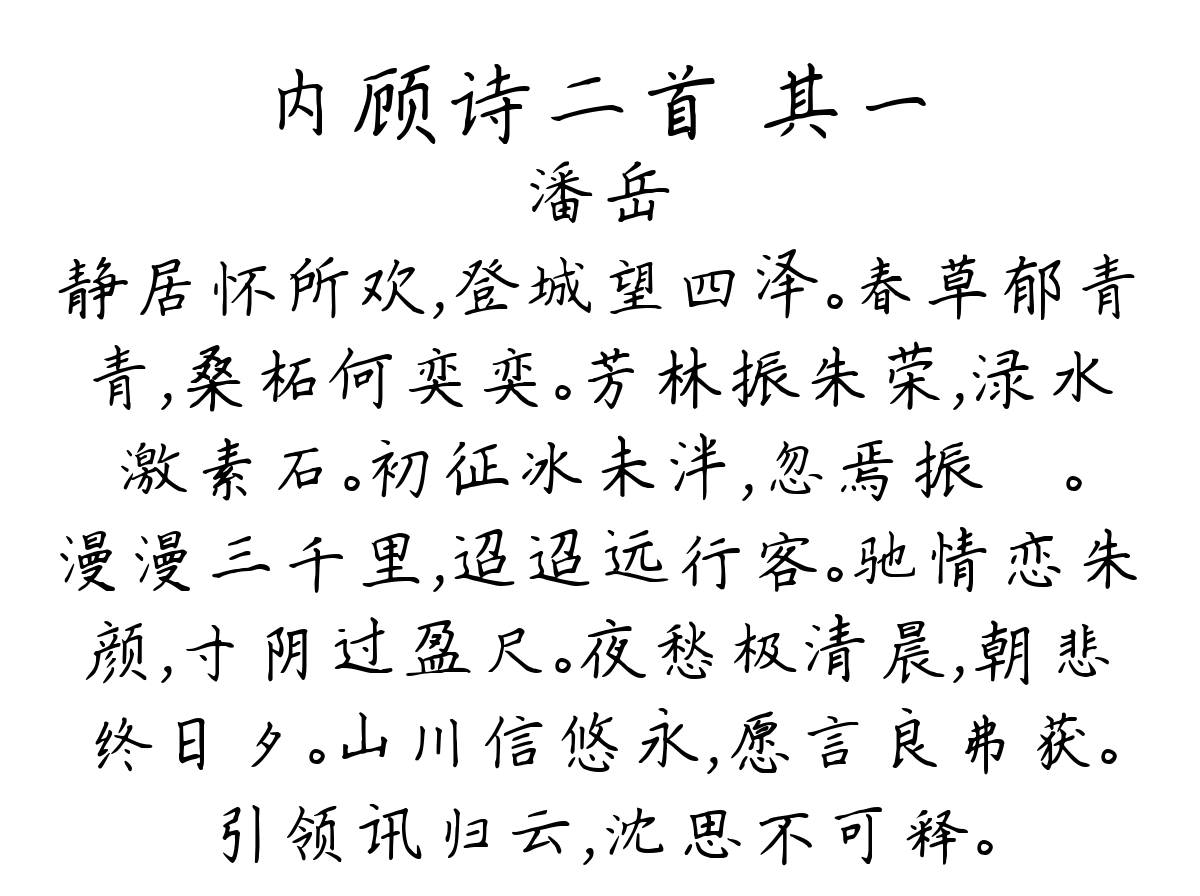 内顾诗二首 其一
潘岳
静居怀所欢,登城望四泽。春草郁青
青,桑柘何奕奕。芳林振朱荣,渌水
激素石。初征冰未泮,忽焉振 。
漫漫三千里,迢迢远行客。驰情恋朱
颜,寸阴过盈尺。夜愁极清晨,朝悲
终日夕。山川信悠永,愿言良弗获。
引领讯归云,沈思不可释。